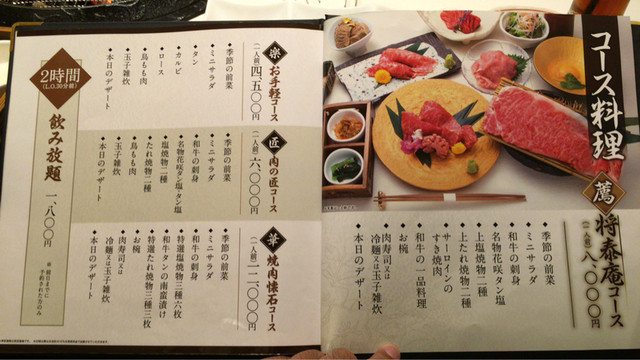 コース料理
萬 将泰庵コース
(一人前) 八、〇〇〇円
◆季節の前菜
◆ミニサラダ
◆和牛の刺身
◆名物花咲タン塩
◆上塩焼物二種
◆上たれ焼物二種
◆サーロインの
すき焼肉
◆和牛の一品料理
◆お椀
◆肉寿司又は
冷麺又は玉子雑炊
◆本日のデザート
楽 お手軽コース
(一人前) 四、五〇〇円
◆季節の前菜
◆ミニサラダ
◆タン
◆カルビ
◆ロース
◆鳥もも肉
◆玉子雑炊
◆本日のデザート
匠 肉の匠コース
(一人前) 六、〇〇〇円
◆季節の前菜
◆ミニサラダ
◆和牛の刺身
◆名物花咲タン塩・タン塩
◆塩焼物二種
◆たれ焼物二種
◆鳥もも肉
◆玉子雑炊
◆本日のデザート
華 焼肉懐石コース
(一人前) 一二、〇〇〇円
◆季節の前菜
◆ミニサラダ
◆和牛の刺身
◆特選塩焼物三種六枚
◆和牛タンの南蛮漬け
◆特選たれ焼物三種三枚
◆お椀
◆肉寿司又は
冷麺又は玉子雑炊
◆本日のデザート
2時間
(L.O.30分前)
飲み放題
一、八〇〇円
※前日までに
予約された方のみ